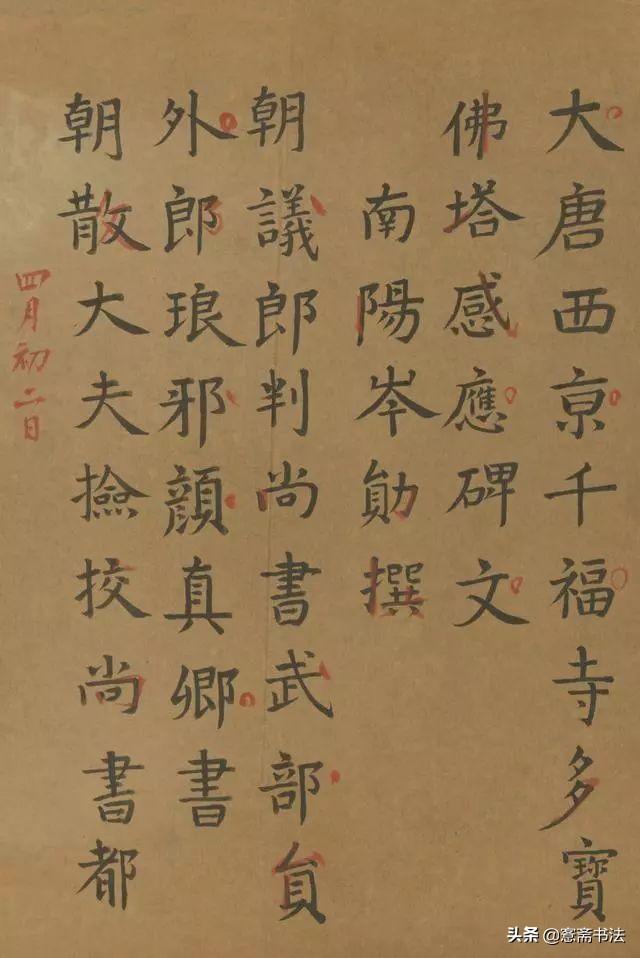 大唐西京千福寺多寶
佛塔感應碑文
南陽岑勛撰
朝議郎判尚書武部員
外郎琅邪顔真卿書
朝散大夫撿挍尚書都
四月初二日
头条 @窓斋书法